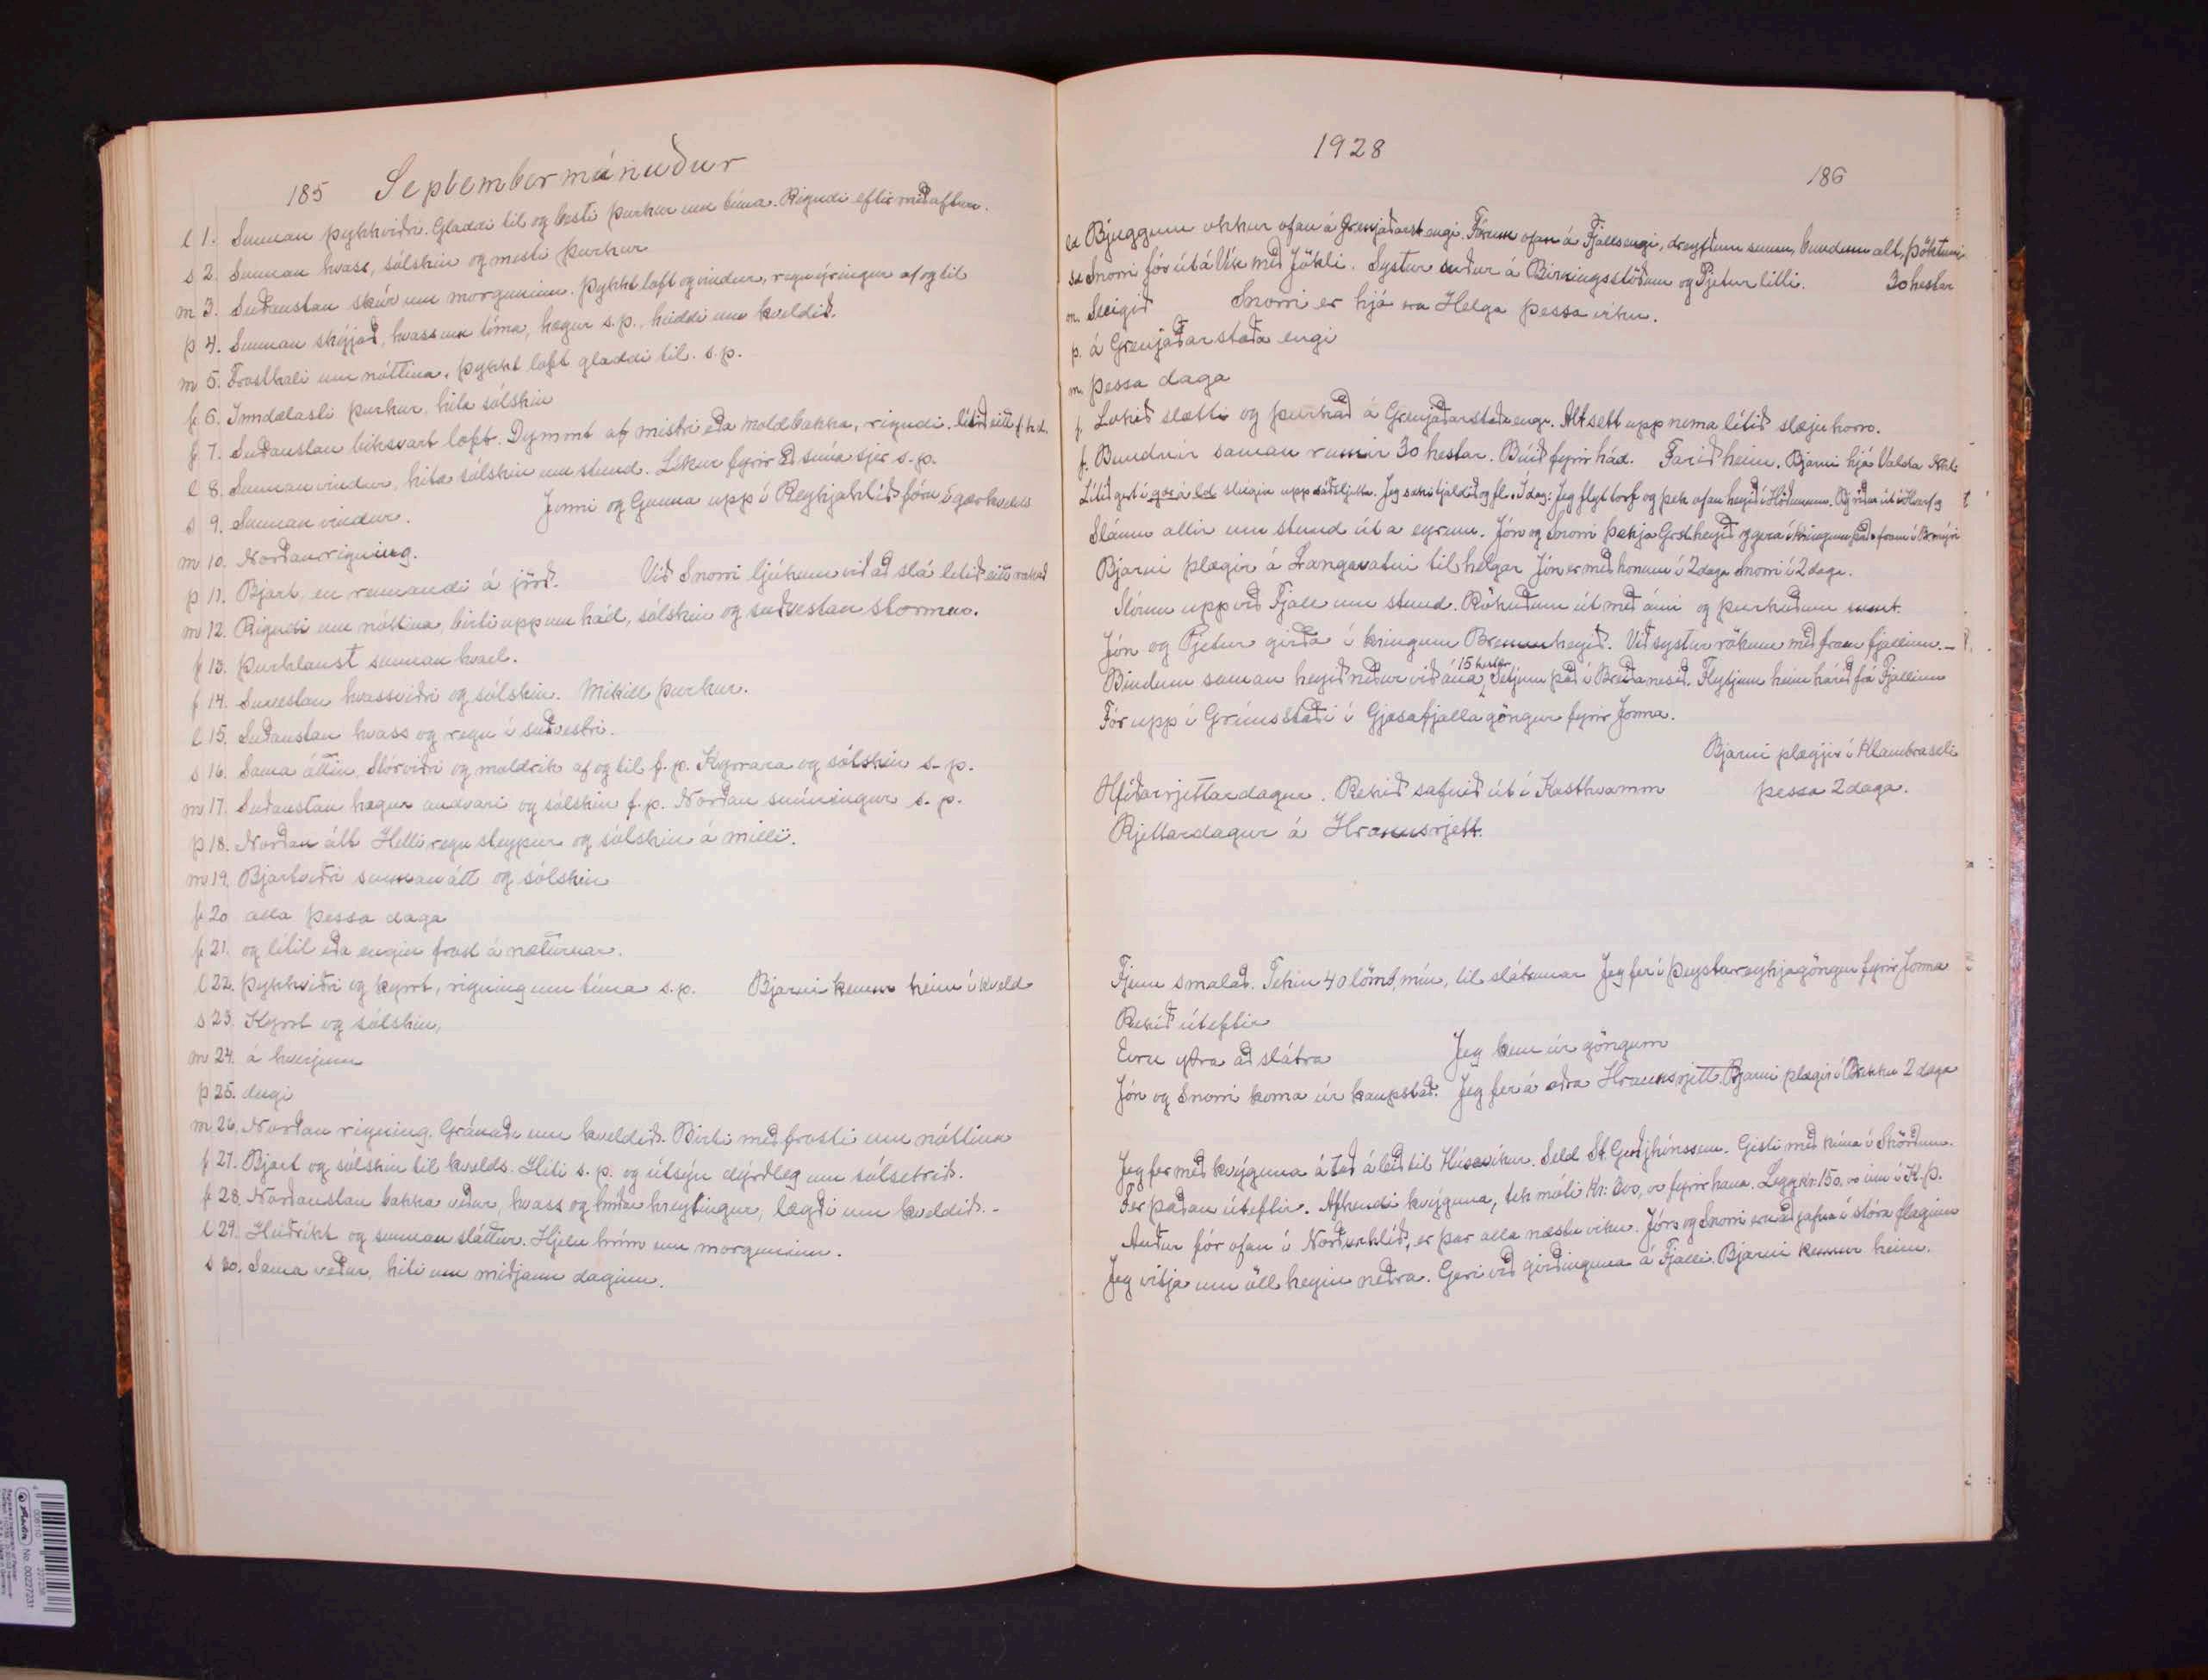 185 Septembermánuður
l 1. Sunnan þykkviðri. Gladdi til og besti þurkur um tíma. Rigndi eftir miðaftan.
s 2. Sunnan hvass, sólskin og mesti þurkur
m 3. Suðaustan skúr um morguninn. Þykkt loft og vindur, regnýringur af og til
þ 4. Sunnan skýjað, hvass um tíma, hægur s.p., huldi um kveldið.
m 5. Frostkali um nóttina, þykkt loft gladdi til. s.p.
f 6. Inndælasti þurkur, hita sólskin
f 7. Suðaustan biksvart loft. Dymmt af mistri eða moldbakka, rigndi. lítið eitt
l 8. Sunnan vindur, hita sólskin um stund. Lekur fyrir að snúa sjer s.p.
s 9. Sunnan vindur. Jonni og Gunna upp í Reykjahlíð fóru í gærkvelds
m 10. Norðanrigning.
þ 11. Bjart, en rennandi á jörð. Við Snorri ljúkum við að slá lítið eitt rakað
m 12. Rigndi um nóttina, birti upp um hád, sólskin og suðvestan stormur.
f 13. Þurklaust sunnan hvasl.
f 14. Suvestan hvassviðri og sólskin. Mikill þurkur.
l 15. Suðaustan hvass og regn í suðvestri.
s 16. Sama áttin. Stórviðri og moldrik af og til f.p. Kyrrara og sólskin s-p.
m 17. Suðaustan hægur andvari og sólskin f.p. Norðan snúningur s.p.
þ 18. Norðan átt Helliregn steypur og sólskin á milli.
m 19. Bjartviðri sunnanátt og sólskin
f 20 alla þessa daga
f 21. og lítil eða engin frost á næturnar.
l 22. Þykkviðri og kyrrt, rigning um tíma s.p. Bjarni kemur heim í kveld
s 23. Kyrrt og sólskin,
m 24. á hverjum
þ 25. degi
m 26. Norðan rigning. Gránaði um kveldið. Birti með frosti um nóttina
f 27. Bjart og sólskin til kvelds. Hiti s.p. og útsýn dýrðleg um sólsetrið.
f 28. Norðaustan bakka veður, hvass og hreytingur, lægði um kveldið.-
l 29. Heiðríkt og sunnan sláttur. Hjelu hrím um morguninn.
s 30. Sama veður, hiti um miðjann daginn.
1928
186
Bjuggum okkur ofan á Grenjaðarst engi. Fórum ofan á Fjallsengi, dreyfðum sunnu, bundum alt, þöktum
Snorri fór út á Vík með Jökli. Systur suður á Birningsstöðum og Pjetur litli. 30 hestar
m. Slegið Snorri er hjá sra Helga þessa viku.
þ. á Grenjaðarstaða engi
m. þessa daga
f. Lokið slætti og þurkað á Grenjaðarstaðaengi. Alt sett upp nema lítið slæjuhorn.
f. Bundnir saman rumir 30 hestar. Búið fyrir hád. Farið heim. Bjarni hjá Valda
Lítið gert í gær á upp. Jeg sæki tjaldið og fl. Í dag: Jeg flyt torf og þek ofan heyið í
Sláum allir um stund út á eyrum. Jón og Snorri þekja heyið og gera í kringum það fram í
Bjarni plægir á Langavatni til helgar Jón er með honum í 2 daga Snorri í 2 daga.
Slóum upp við Fjall um stund. Rökuðum út með ánni og þurkuðum sumt.
Jón og Pjetur girða í kringum heyið. Við systur rökum með fram fjallinu.-
Bindum saman heyið niður við ána 15 hestar, Setjum það í Breðanesið. Flytjum heim hárið frá Fjallinu
Fór upp í Grímsstaði í Gjæsafjalla göngur fyrir Jonna.
Bjarni plægir í Klambraseli
Hlíðarrjettardagur. Rekið safnið út í Kasthvamm þessa 2 daga.
Rjettardagur á Hraunsrjett.
Fjenu smalað. Tekin 40 lömb, mín, til slátrunar Jeg fer í Þeystareykjagöngur fyrir Jonna
Rekið úteftir
Eru ytra að slátra Jeg kem úr göngum
Jón og Snorri koma úr kaupstað. Jeg fer á aðra Hraunsrjett. Bjarni plægir í Brekku 2 daga
Jeg fer með kvýguna á stað áleið til Húsavíkur. Seld St. Guðjhónssen. Gisti með hana í Skörðum.
Fer þaðan úteftir. Afhendi kvýguna, tek móti Kr: 300, oo fyrir hana. Legg kr. 150. oo inn í K.þ.
Auður fór ofan í Norðurhlíð, er þar alla næstu viku. Jón og Snorri eru að jafna í stóra flaginu
Jeg vitja um öll heyin neðra. Geri við girðinguna á Fjalli. Bjarni kemur heim.